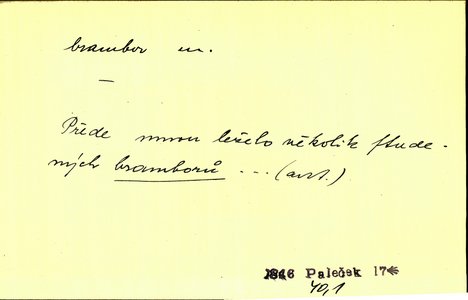 brambor m.
—
Přede mnou leželo několik stude-
ných bramborů ... (aut.)
1846 Paleček 17
40,1